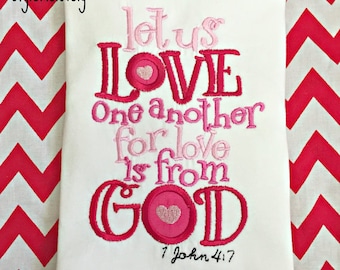 let us
LOVE
one another
for love
is from
GOD
1 John 4:7